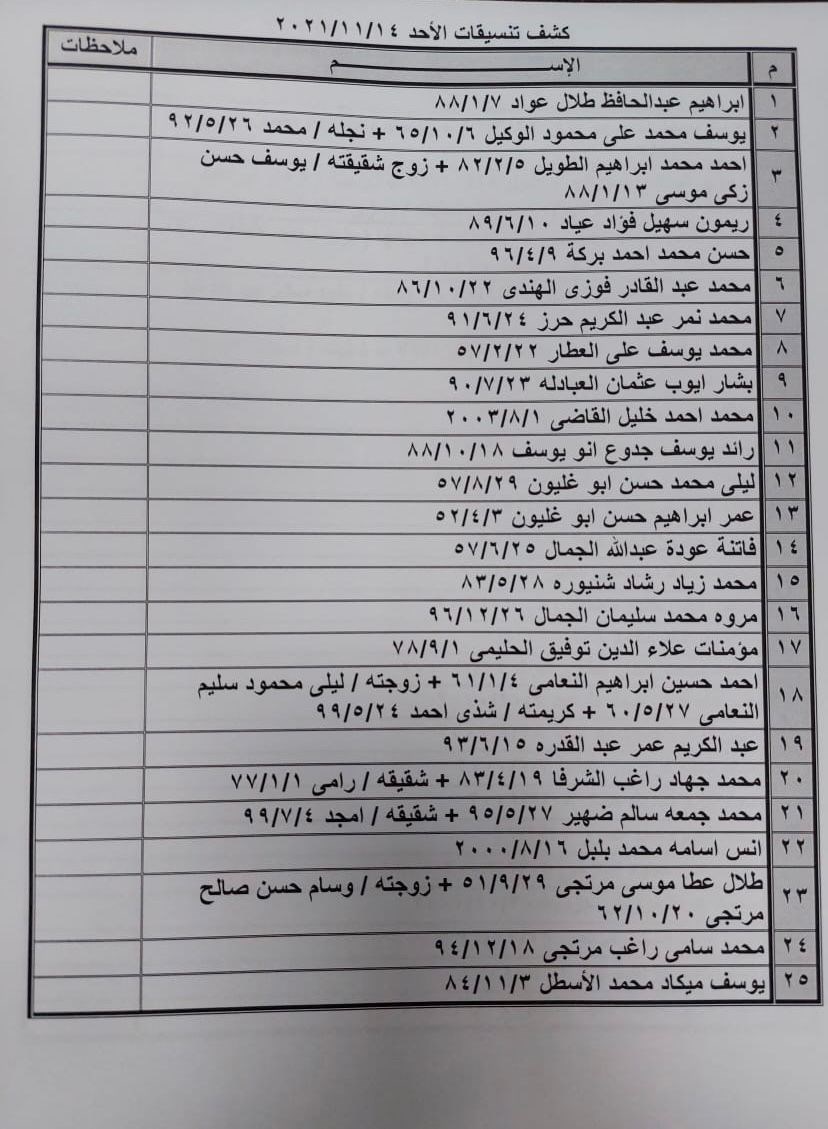 كشف تنسيقات الأحد ٢٠٢١/١١/١٤
م الإســـــــــــم ملاحظات
١ ابراهيم عبدالحافظ طلال عواد ٨٨/١/٧
٢ يوسف محمد على محمود الوكيل ٦٥/١٠/٦ + نجله / محمد ٩٢/٥/٢٦
٣ احمد محمد ابراهيم الطويل ٨٢/٢/٥ + زوج شقيقته / يوسف حسن
زكى موسى ٨٨/١/١٣
٤ ريمون سهيل فؤاد عياد ٨٩/٦/١٠
٥ حسن محمد احمد بركة ٩٦/٤/٩
٦ محمد عبد القادر فوزى الهندى ٨٦/١٠/٢٢
٧ محمد نمر عبد الكريم حرز ٩١/٦/٢٤
٨ محمد يوسف على العطار ٥٧/٢/٢٢
٩ بشار ايوب عثمان العبادله ٩٠/٧/٢٣
١٠ محمد احمد خليل القاضى ٢٠٠٣/٨/١
١١ رائد يوسف جدوع انو يوسف ٨٨/١٠/١٨
١٢ ليلى محمد حسن ابو غليون ٥٧/٨/٢٩
١٣ عمر ابراهيم حسن ابو غليون ٥٢/٤/٣
١٤ فاتنة عودة عبدالله الجمال ٥٧/٦/٢٥
١٥ محمد زياد رشاد شنيوره ٨٣/٥/٢٨
١٦ مروه محمد سليمان الجمال ٩٦/١٢/٢٦
١٧ مؤمنات علاء الدين توفيق الحليمى ٧٨/٩/١
١٨ احمد حسين ابراهيم النعامى ٦١/١/٤ + زوجته / ليلى محمود سليم
النعامى ٦٠/٥/٢٧ + كريمته / شذى احمد ٩٩/٥/٢٤
١٩ عبد الكريم عمر عبد القدره ٩٣/٦/١٥
٢٠ محمد جهاد راغب الشرفا ٨٣/٤/١٩ + شقيقه / رامى ٧٧/١/١
٢١ محمد جمعه سالم ضهير ٩٥/٥/٢٧ + شقيقه / امجد ٩٩/٧/٤
٢٢ انس اسامه محمد بلبل ٢٠٠٠/٨/١٦
٢٣ طلال عطا موسى مرتجى ٥١/٩/٢٩ + زوجته / وسام حسن صالح
مرتجى ٦٢/١٠/٢٠
٢٤ محمد سامى راغب مرتجى ٩٤/١٢/١٨
٢٥ يوسف ميكاد محمد الأسطل ٨٤/١١/٣